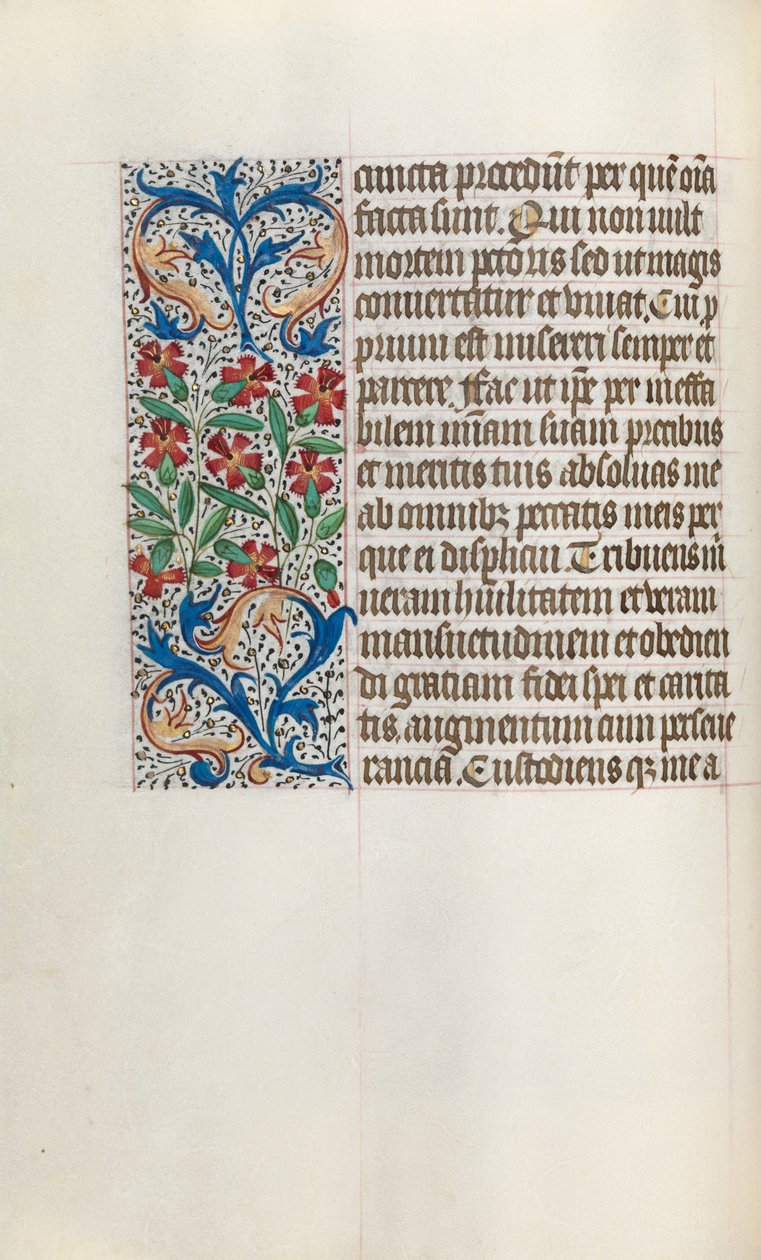 cuncta procedūt per quē oīa
facta sunt. Qui non uult
mortem pctōris sed ut magis
conuertatur et viuat. Cui p
prium est misereri semper et
parcere. Fac ut ip̄e per ineffa
bilem mīam suam precibus
et meritis tuis absoluas me
ab omnibꝫ peccatis meis per
que ei displicui. Tribuens m̄
ueram huīlitatem et veram
mansuetudinem et obedien
di gratiam fidei spei et carita
tis. augmentum cum perseue
rancia. Custodiens qꝫ me a